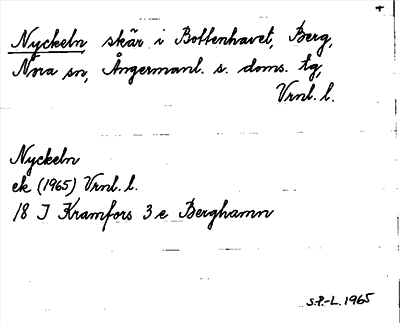 +
Nyckeln, skär i Bottenhavet, Berg,
Nora sn, Ångermanl. s. doms. tg,
Vrnl. l.
Nyckeln
ek (1965) Vrnl. l.
18 J Kramfors 3 e Berghamn
S.P.-L. 1965